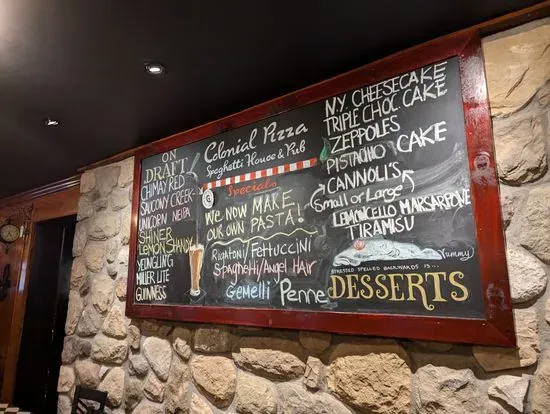 ON
DRAFT
CHIMAY RED
SAUCONY CREEK
UNICORN NEIPA
SHINER
LEMON SHANDY
YEUNGLING
MILLER LITE
GUINNESS
Colonial Pizza
Spaghetti House & Pub
Specials
WE NOW MAKE
OUR OWN PASTA!
Rigatoni/Fettuccini
Spaghetti/Angel Hair
Gemelli Penne
NY CHEESECAKE
TRIPLE CHOC CAKE
ZEPPOLES
PISTACHIO CAKE
CANNOLI'S
Small or Large
LEMONCELLO MARSARPONE
TIRAMISU
Yummy
STRESSED SPELLED BACKWARDS IS...
DESSERTS